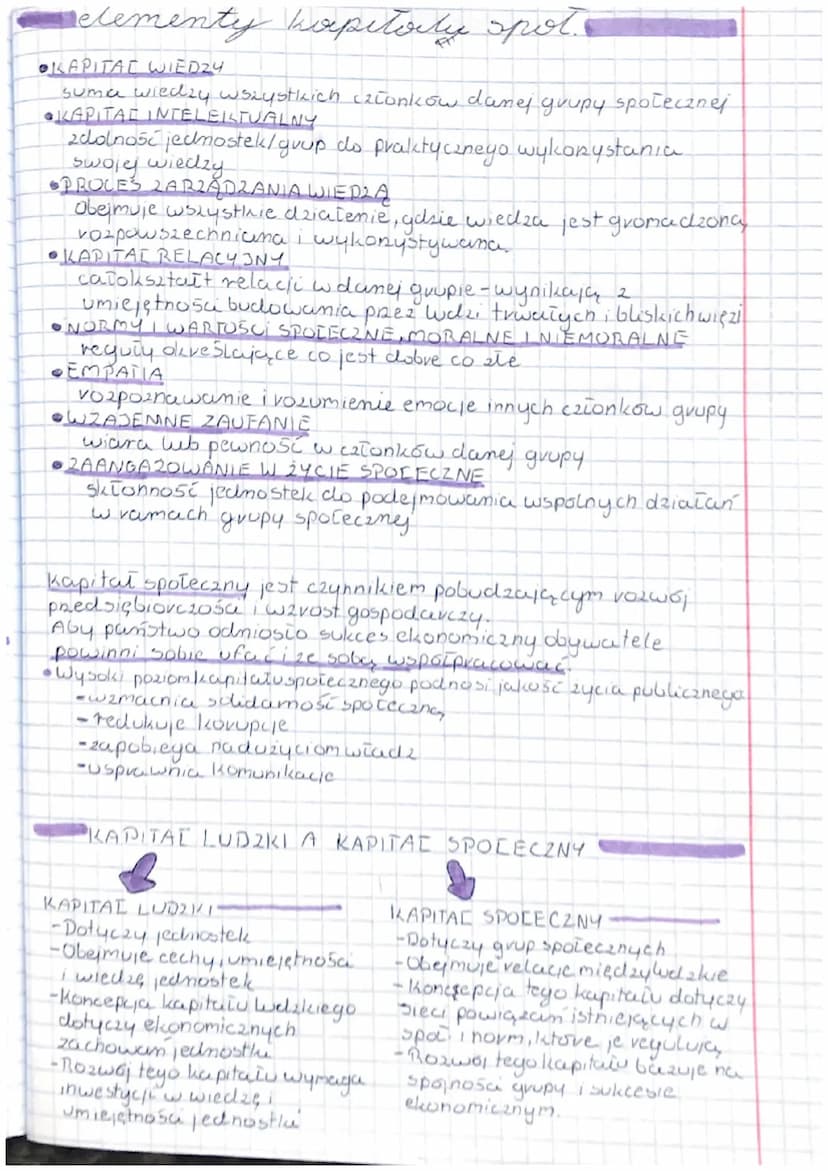 elementy kapitału społ.
• KAPITAŁ WIEDZY
suma wiedzy wszystkich członków danej grupy społecznej
• KAPITAŁ INTELEKTUALNY
zdolność jednostek/grup do praktycznego wykorzystania
swojej wiedzy
• PROCES ZARZĄDZANIA WIEDZĄ
Obejmuje wszystkie działenie, gdzie wiedza jest gromadzona,
rozpowszechniana i wykorzystywana.
• KAPITAŁ RELACYJNY
całokształt relacji w danej grupie - wynikają z
umiejętności budowania przez ludzi trwałych i bliskich więzi
• NORMY I WARTOŚCI SPOŁECZNE, MORALNE I NIEMORALNE
reguły określające co jest dobre co złe
• EMPATIA
rozpoznawanie i rozumienie emocje innych członków grupy
• WZAJEMNE ZAUFANIE
wiara lub pewność w członków danej grupy
• ZAANGAŻOWANIE W ŻYCIE SPOŁECZNE
skłonność jednostek do podejmowania wspólnych działań
w ramach grupy społecznej
Kapitał społeczny jest czynnikiem pobudzającym rozwój
przedsiębiorczości i wzrost gospodarczy.
Aby państwo odniosło sukces ekonomiczny obywatele
powinni sobie ufać i ze sobą współpracować.
• Wysoki poziom kapitału społecznego podnosi jakość życia publicznego
- wzmacnia solidarność społeczną
- redukuje korupcje
- zapobiega nadużyciom władz
- usprawnia komunikacje
KAPITAŁ LUDZKI A KAPITAŁ SPOŁECZNY
KAPITAŁ LUDZKI
- Dotyczy jednostek
- Obejmuje cechy, umiejętności
i wiedzę jednostek
- Koncepcja kapitału ludzkiego
dotyczy ekonomicznych
zachowań jednostki
- Rozwój tego kapitału wymaga
inwestycji w wiedzę i
umiejętności jednostki
KAPITAŁ SPOŁECZNY
- Dotyczy grup społecznych
- Obejmuje relacje międzyludzkie
- Koncepcja tego kapitału dotyczy
sieci powiązań istniejących w
społ. i norm, które je regulują
- Rozwój tego kapitału bazuje na
spójności grupy i sukcesie
ekonomicznym.